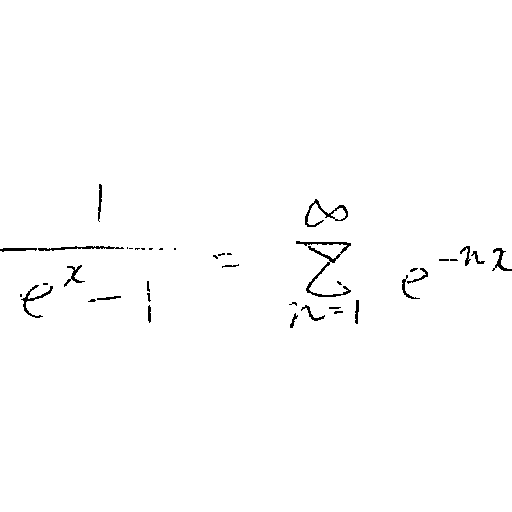 \frac{1}{e^x - 1} = \sum_{n=1}^{\infty} e^{-nx}